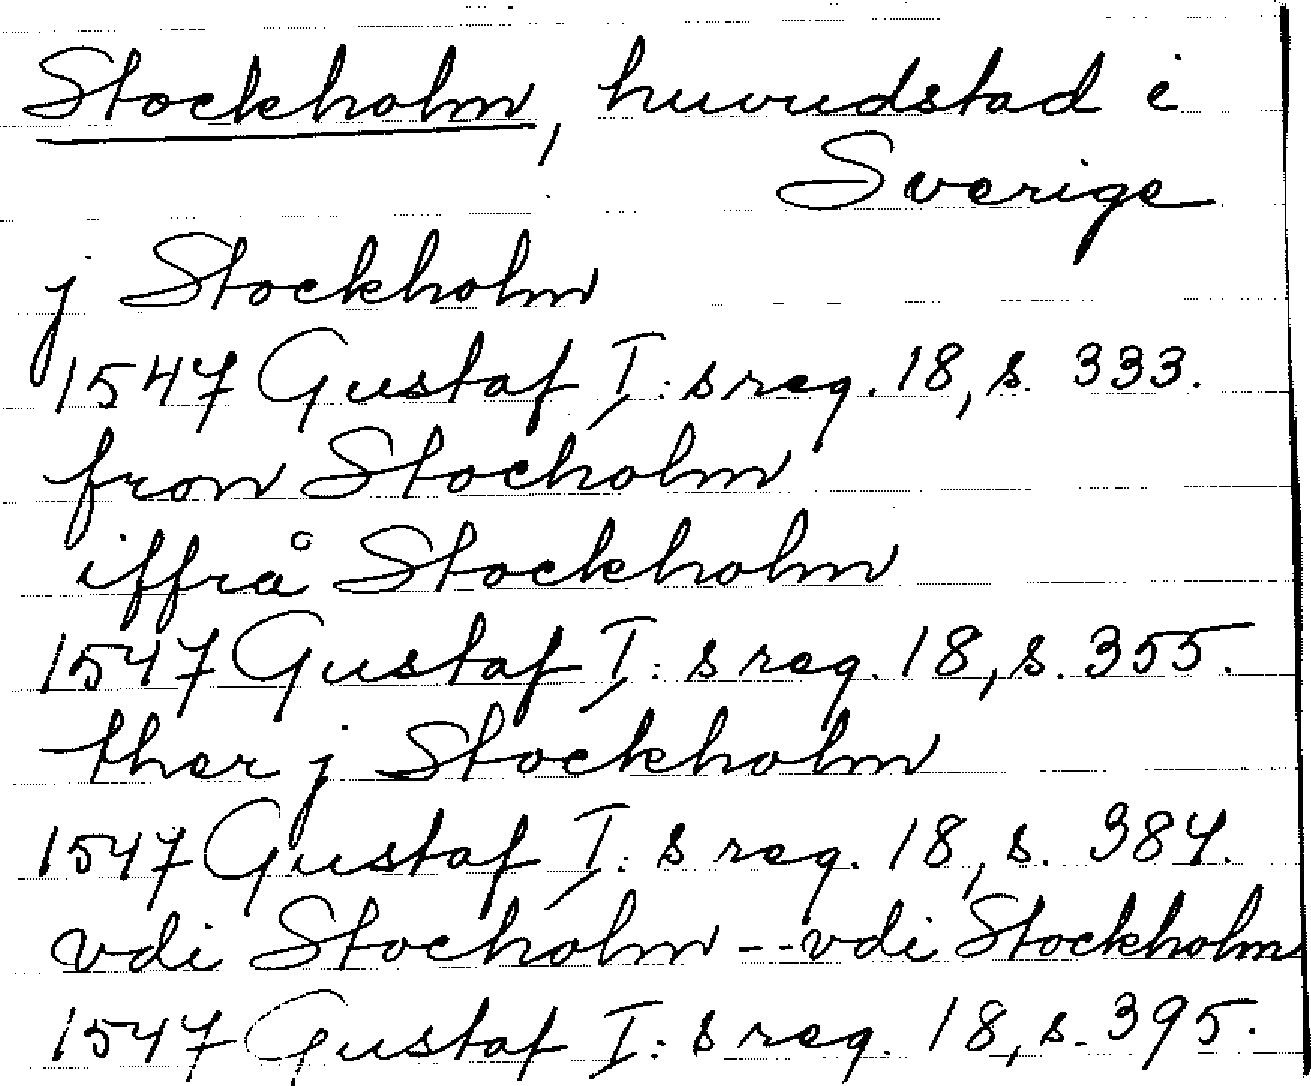 Stockholm, huvudstad i
Sverige
j Stockholm
1547 Gustaf I:s reg. 18, s. 333.
fron Stocholm
iffrå Stockholm
1547 Gustaf I:s reg. 18, s. 355.
ther j Stockholm
1547 Gustaf I:s reg. 18, s. 384.
vdi Stocholm -- vdi Stockholm
1547 Gustaf I:s reg. 18, s. 395.